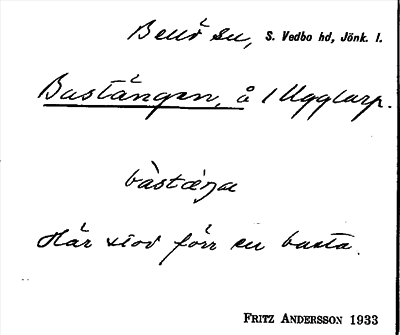 Bellö sn, S. Vedbo hd, Jönk. l.
Bastängen, å / Ugglarp.
bàstæŋa
Här stod förr en basta.
FRITZ ANDERSSON 1933